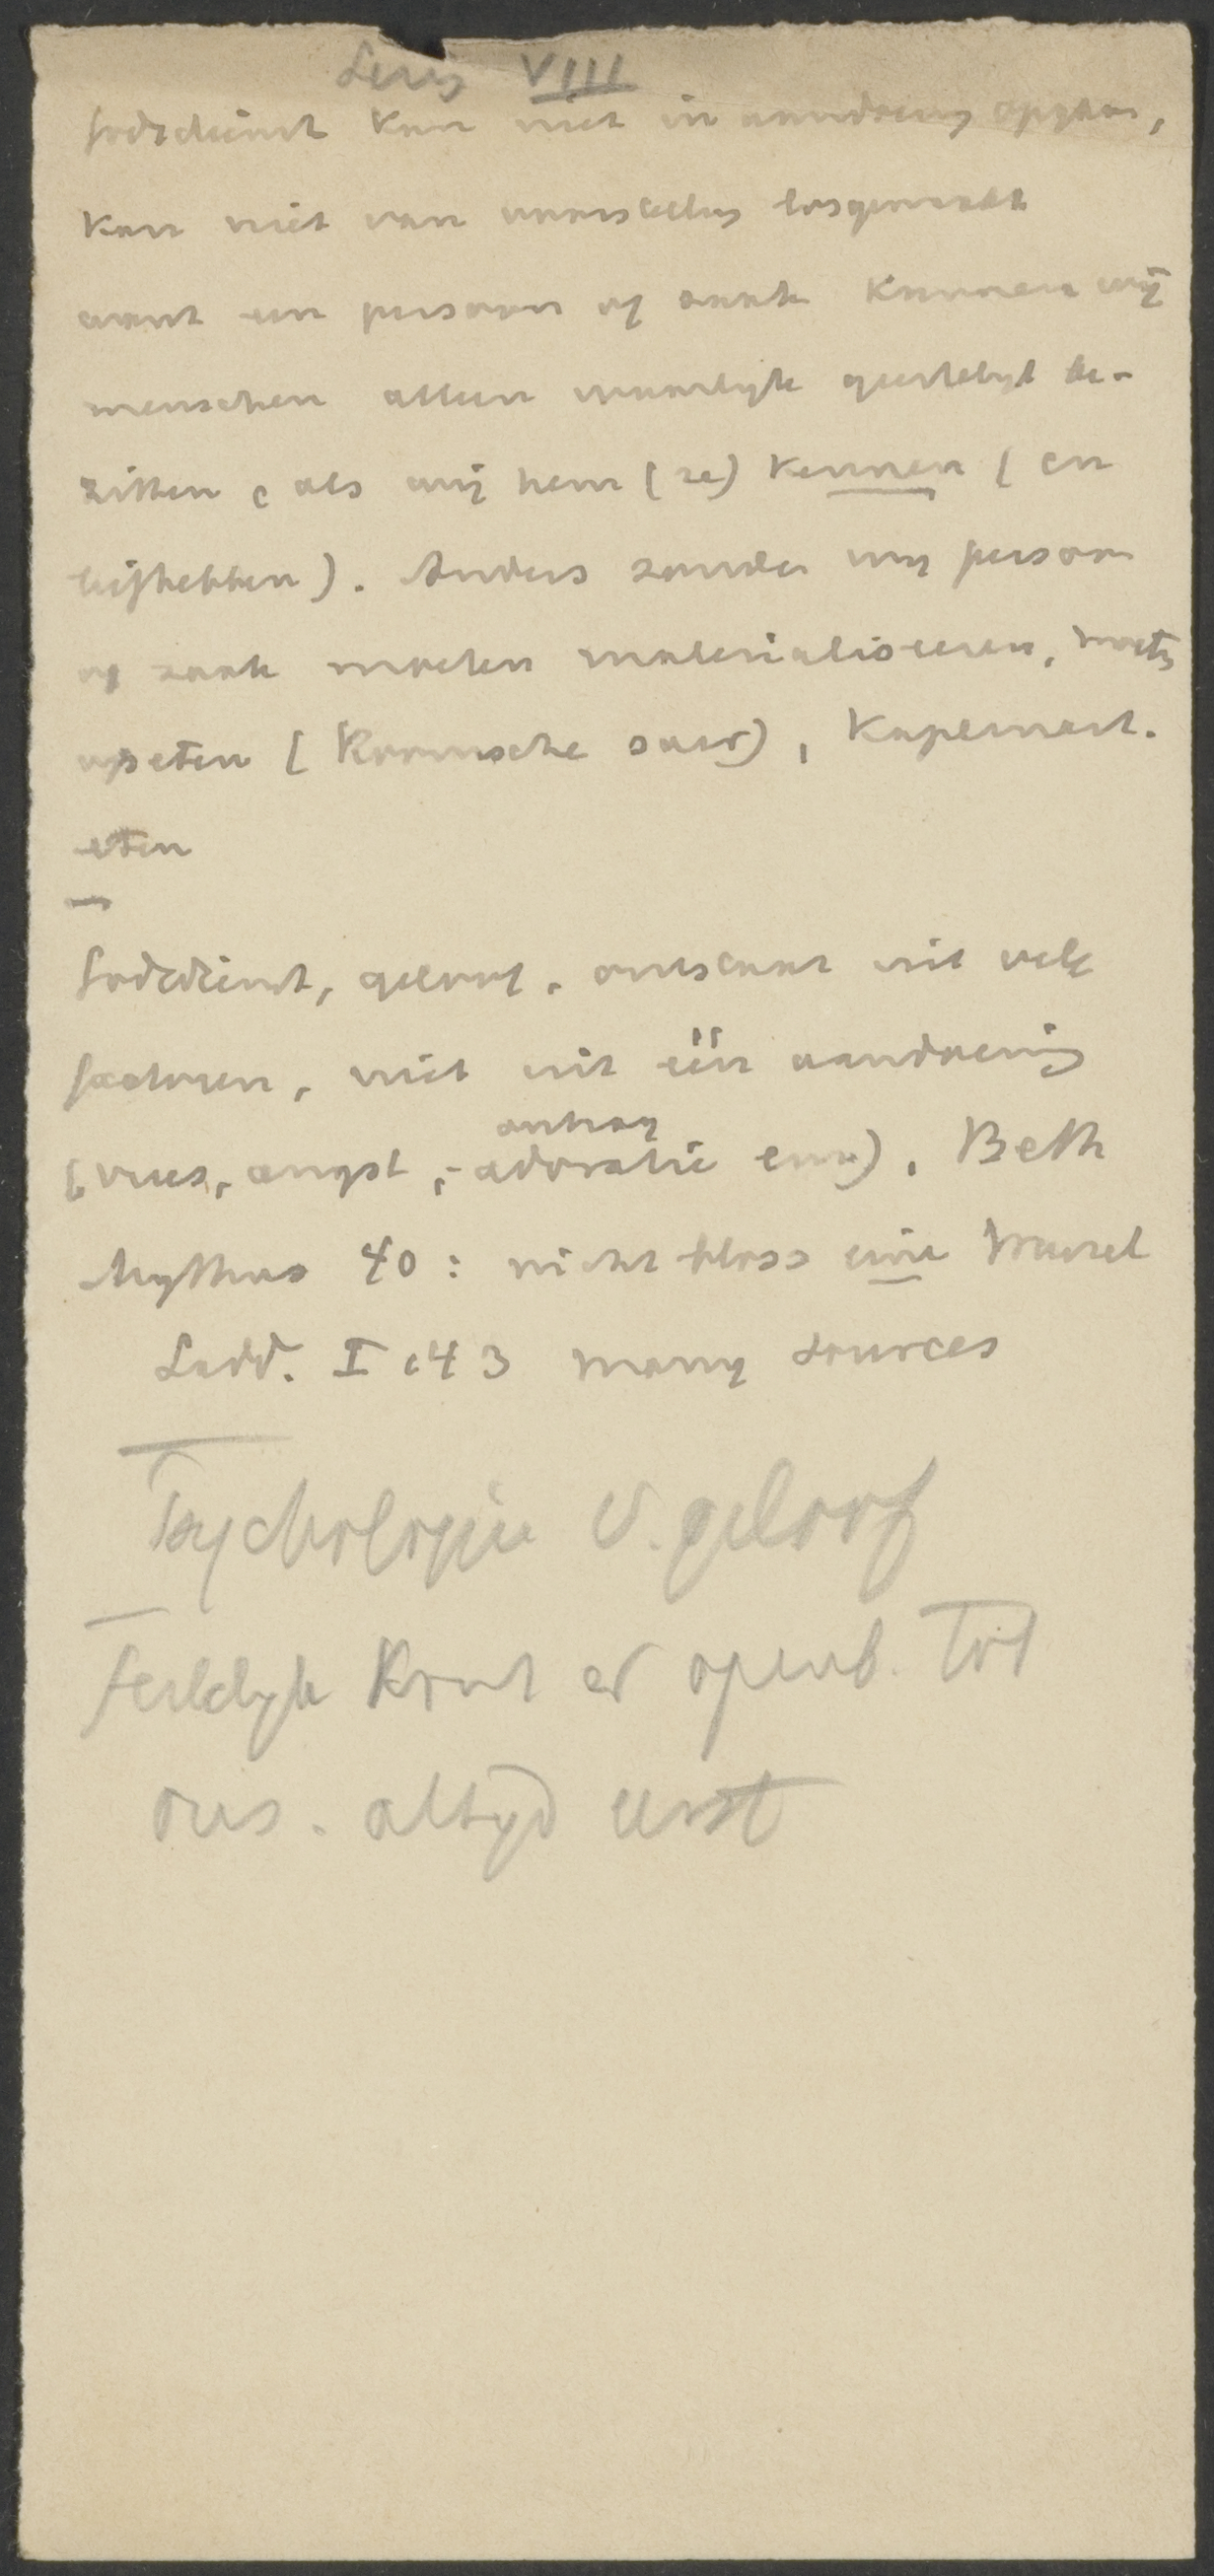 VIII
Godsdienst kan niet in aandoening opgaan,
kan niet van voorstelling losgemaakt
want een persoon of zaak kunnen wij
menschen alleen waarlijk geestelijk be-
zitten, als wij hem (ze) kennen (en
liefhebben). Anders zouden wij persoon
of zaak moeten materialiseeren, moeten
opeten (Roomsche sacr), Kapernait.
eten
Godsdienst, geloof, ontstaat uit vele
factoren, niet uit één aandoening
(vrees, angst, adoratie enz). Beth
Mythus 40: nicht bloss eine Wurzel
Ladd. I 143 many sources
Psychologie v. geloof
Feitelijk komt er openb. tot
ons. altijd eerst